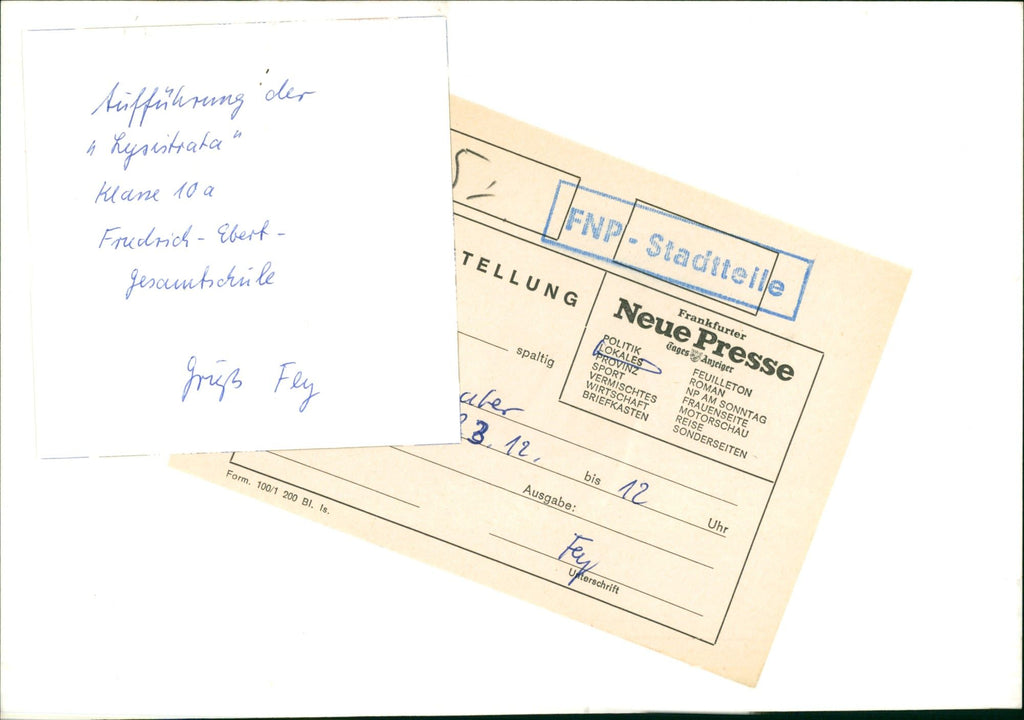 Aufführung der
"Lysistrata"
Klasse 10a
Friedrich-Ebert-
Gesamtschule
Gruß Fey
FNP-Stadtteile
TELLUNG
spaltig
Frankfurter
Neue Presse
Tages Anzeiger
POLITIK
LOKALES
PROVINZ
SPORT
VERMISCHTES
WIRTSCHAFT
BRIEFKASTEN
FEUILLETON
ROMAN
NP AM SONNTAG
FRAUENSEITE
MOTORSCHAU
REISE
SONDERSEITEN
3.12. bis 12 Uhr
Ausgabe:
Fey
Unterschrift
Form. 100/1 200 Bl. ls.